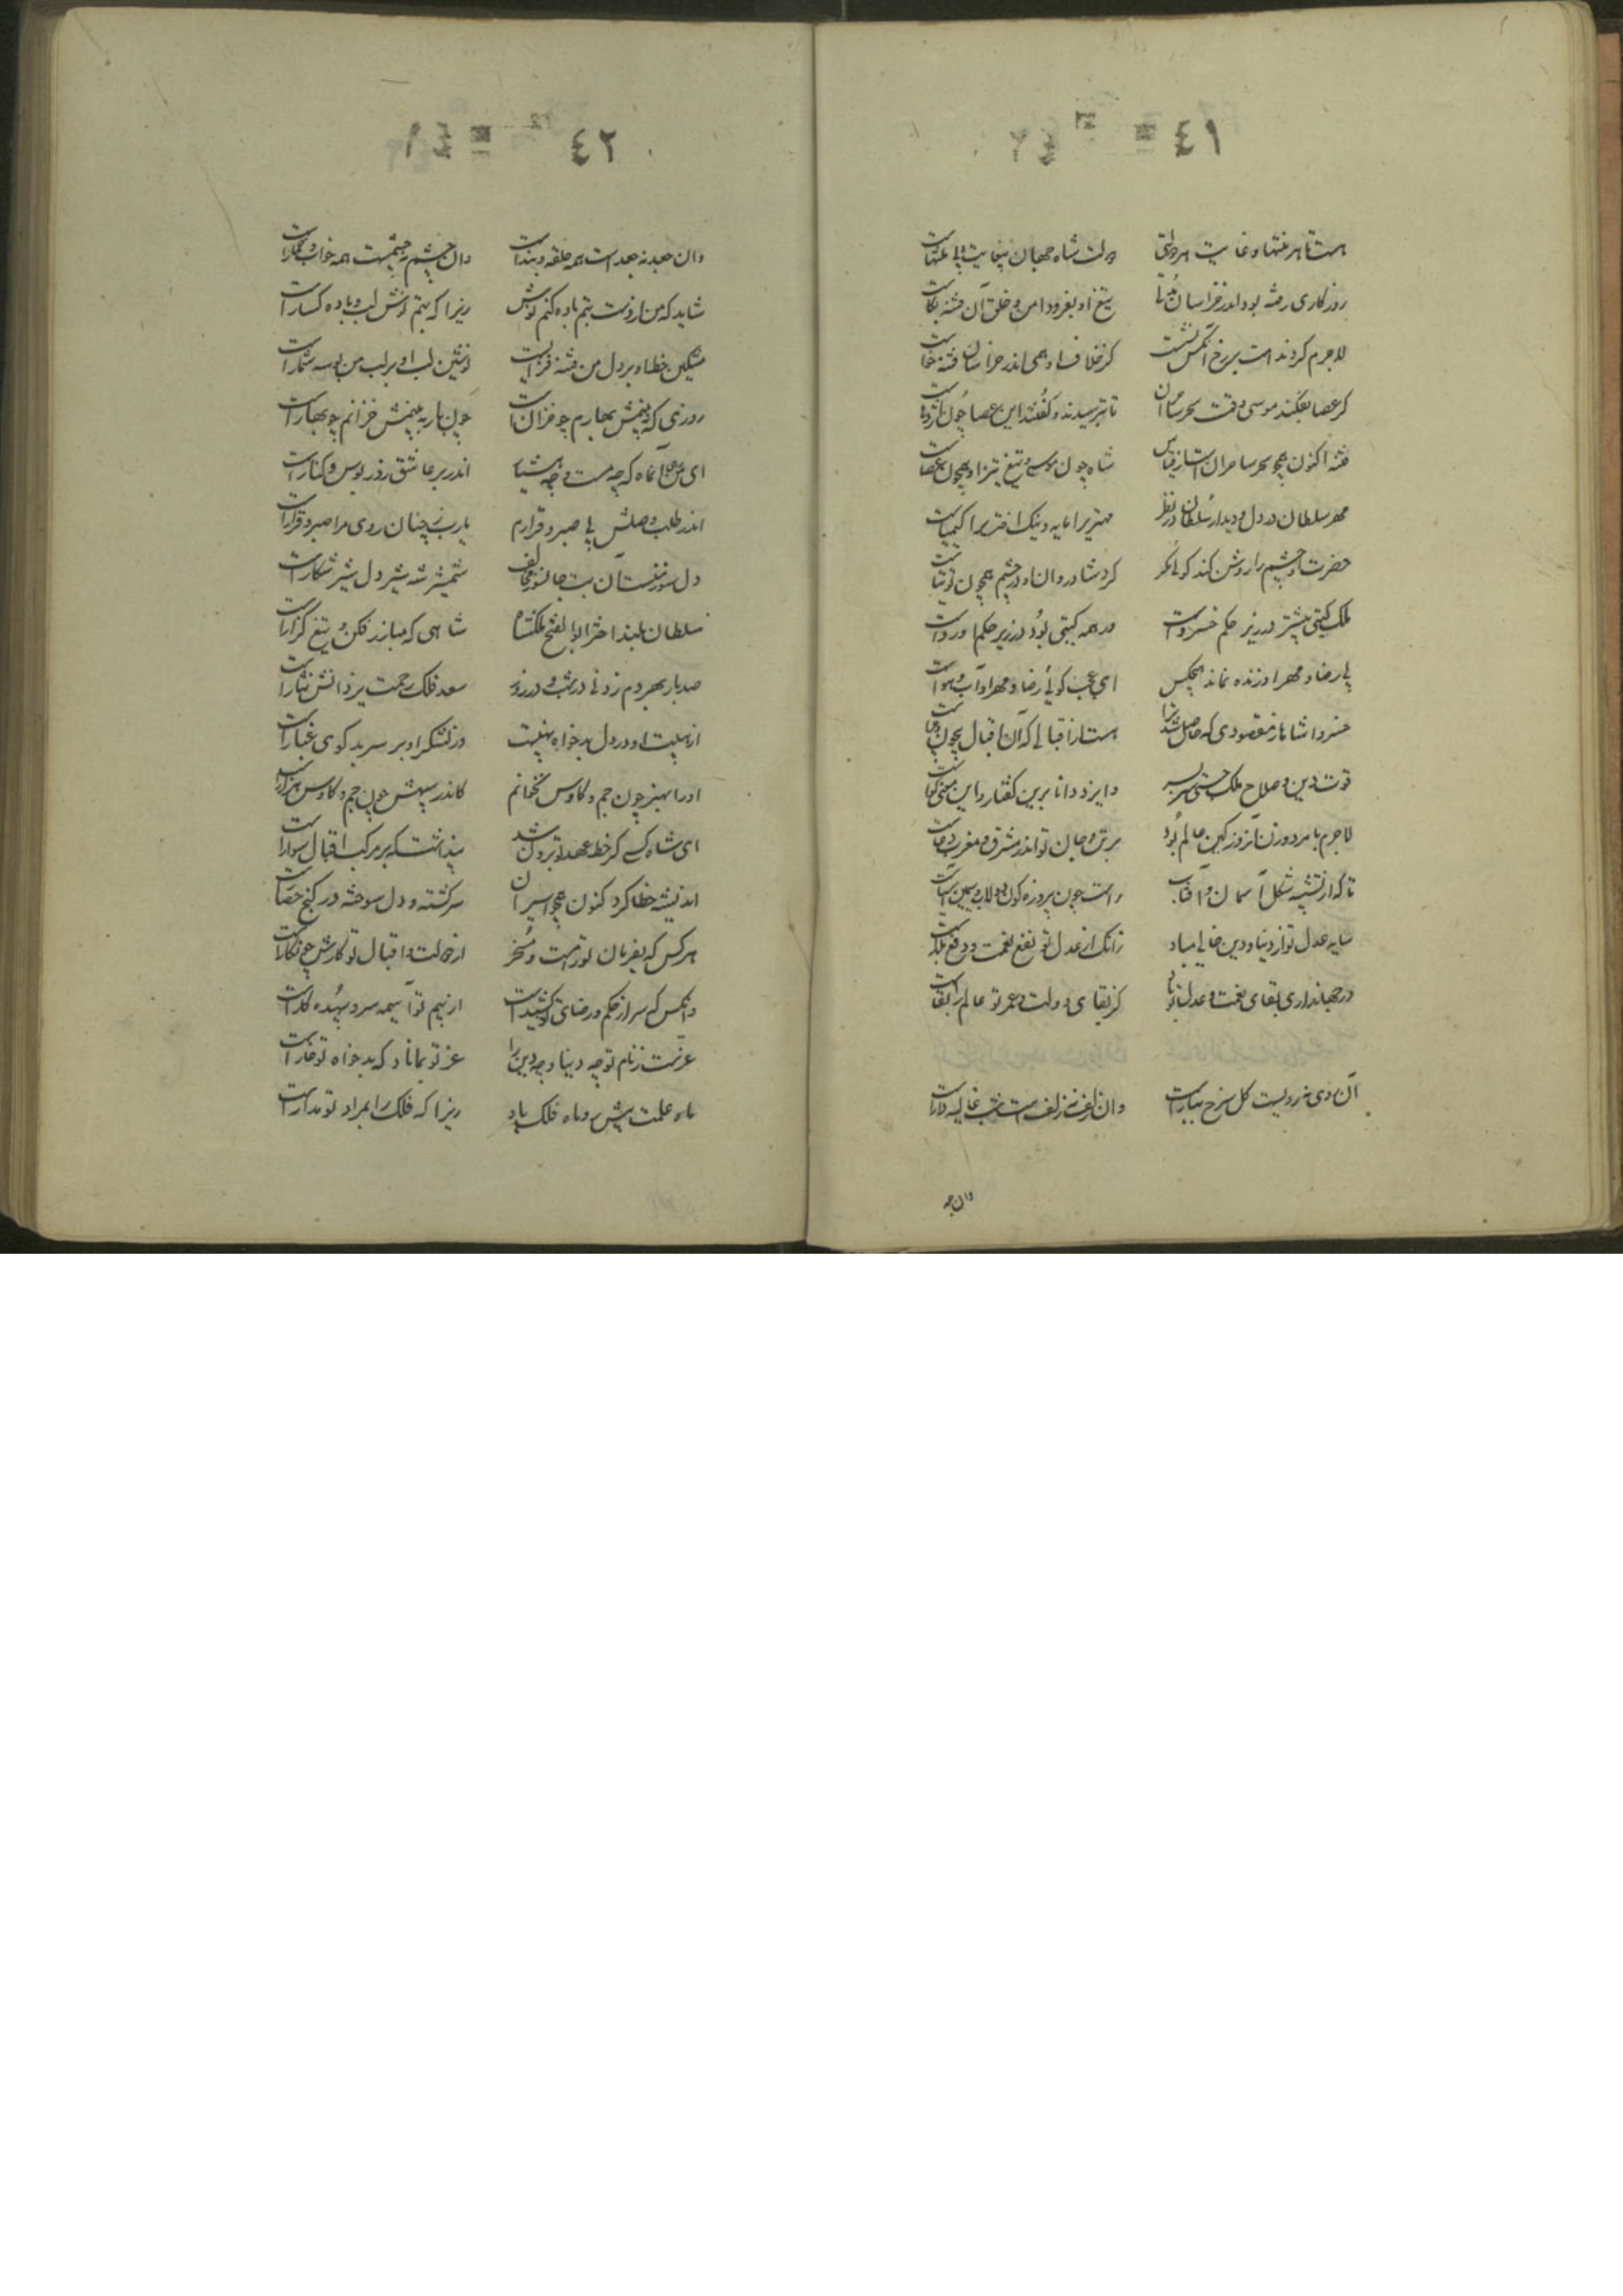 ٤١
هست تا هر منتها و غایت هر دولتی دولت شاه جهان بیغایت و بی منتهاست
روزگاری رفته بود اندر خراسان تیغ او بفزود امن و خلق آن فتنه بکاست
لاجرم کردند است بر رخ آنکس کز خلاف او همی اندر خراسان فتنه خاست
گر عصا بفکند موسی وقت سحر ساحران تا بترسیدند و گفتند این عصا چون اژدهاست
فتنه اکنون همچو سحر ساحران است از قیاس شاه چون موسی و تیغ تیز او همچون عصاست
مهر سلطان در دل و دیدار سلطان در نظر مهتریرا مایه و نیک اختریرا کیمیاست
حضرت او چشم را روشن کند گوئی مگر گرد شادروان او در چشم همچون توتیاست
ملک گیتی بیشتر در زیر حکم خسرو است در همه گیتی بود در زیر حکم او رواست
بی رضا و مهر او زنده نماند هیچکس ای عجب گوئی رضا و مهر او آب و هواست
خسروا شاها ز مقصودی که حاصل شد ترا هست از اقبالی که آن اقبال بیچون و چراست
قوت دین و صلاح ملک جستی سر بسر و ایزد دانا برین گفتار و این معنی گواست
لاجرم تا مرد و زن آنروز کین عالم بود بر تن و جان تو اندر مشرق و مغرب دعاست
تا که از تشبیه شکل آسمان و آفتاب راست چون پیروزه گون دولاب و سیمین آسیاست
سایه عدل تو از دنیا و دین خالی مباد زانک از عدل تو نفع نعمت و دفع بلاست
در جهانداری بقای نعمت و عدل تو باد کز بقای دولت و عمر تو عالم را بقاست
آن روی نه رویست گل سرخ ببارست وان زلف نه زلفست شب غالیه بارست
وان جعد
٤٢
وان جعد نه جعدست همه حلقه و بندست وان چشم نه چشمست همه خواب و خمارست
شاید که من از دست بتم باده کنم نوش زیرا که بتم نوش لب و باده گسارست
مشکین خط او بر دل من فتنه فزایست نوشین لب او بر لب من بوسه شمارست
روزی که نه بینمش بهارم چو خزان است چون باز به بینمش خزانم چو بهارست
ای آنگاه که چه مست و چه هشیار اندر بر عاشق ز در بوس و کنارست
اندر طلب وصلش بی صبر و قرارم یارب ز چنان روی مرا صبر و قرارست
دل سوز منست آن بت جانسوز مخالف شمشیر شه شیر دل شیر شکارست
سلطان بلند اختر ابو الفتح ملکشاه شاهی که مبارز فکن و تیغ گزارست
صد بار بهر دم زدنی در شب و در روز سعد فلک و رحمت یزدانش نثارست
از هیبت او در دل بدخواه نهیبست وز لشکر او بر سر بدگوی غبارست
او را بهنر چون جم و کاوس نخوانم کاندر سپهش چون جم و کاوس هزارست
ای شاه کسی کز خط عهد تو برون شد پنداشت که بر مرکب اقبال سوارست
اندیشه خطا کرد کنون همچو اسیران سرگشته و دل سوخته در کنج حصارست
هر کس که بفرمان تو رامست و مسخر از دولت و اقبال تو کارش چو نگارست
وانکس که سر از حکم و رضای تو کشیدست از بیم تو آسیمه سر و بیهده کارست
عزست ز نام تو چه دنیا و چه دین را عز تو بماناد که بدخواه تو خوارست
ماه علمت پیش رو ماه فلک باد زیرا که فلک را بمراد تو مدارست